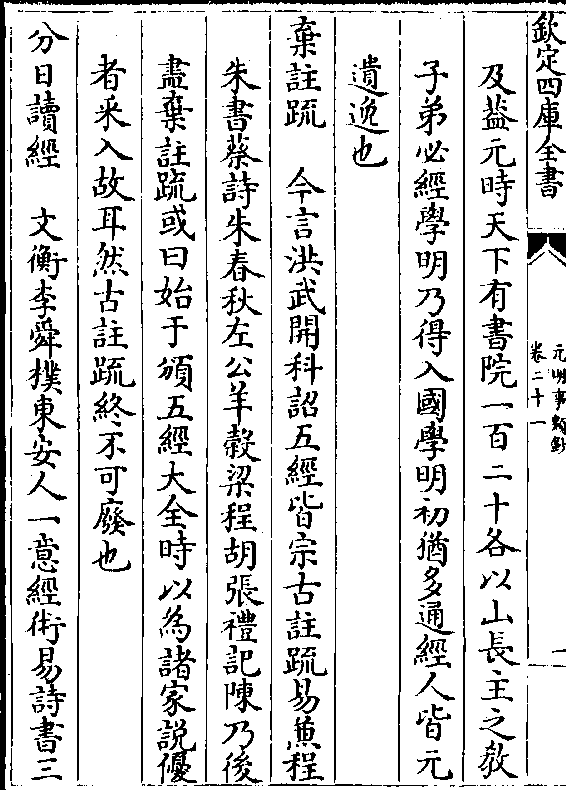 欽定四庫全書
元明事類鈔
卷二十一
一
及葢元時天下有書院一百二十各以山長主之敎
子弟必經學明乃得入國學明初猶多通經人皆元
遺逸也
棄註疏　今言洪武開科詔五經皆宗古註疏易兼程
朱書蔡詩朱春秋左公羊穀梁程胡張禮記陳乃後
盡棄註疏或曰始于頒五經大全時以為諸家説優
者采入故耳然古註疏終不可廢也
分日讀經　文衡李舜樸東安人一意經術易詩書三